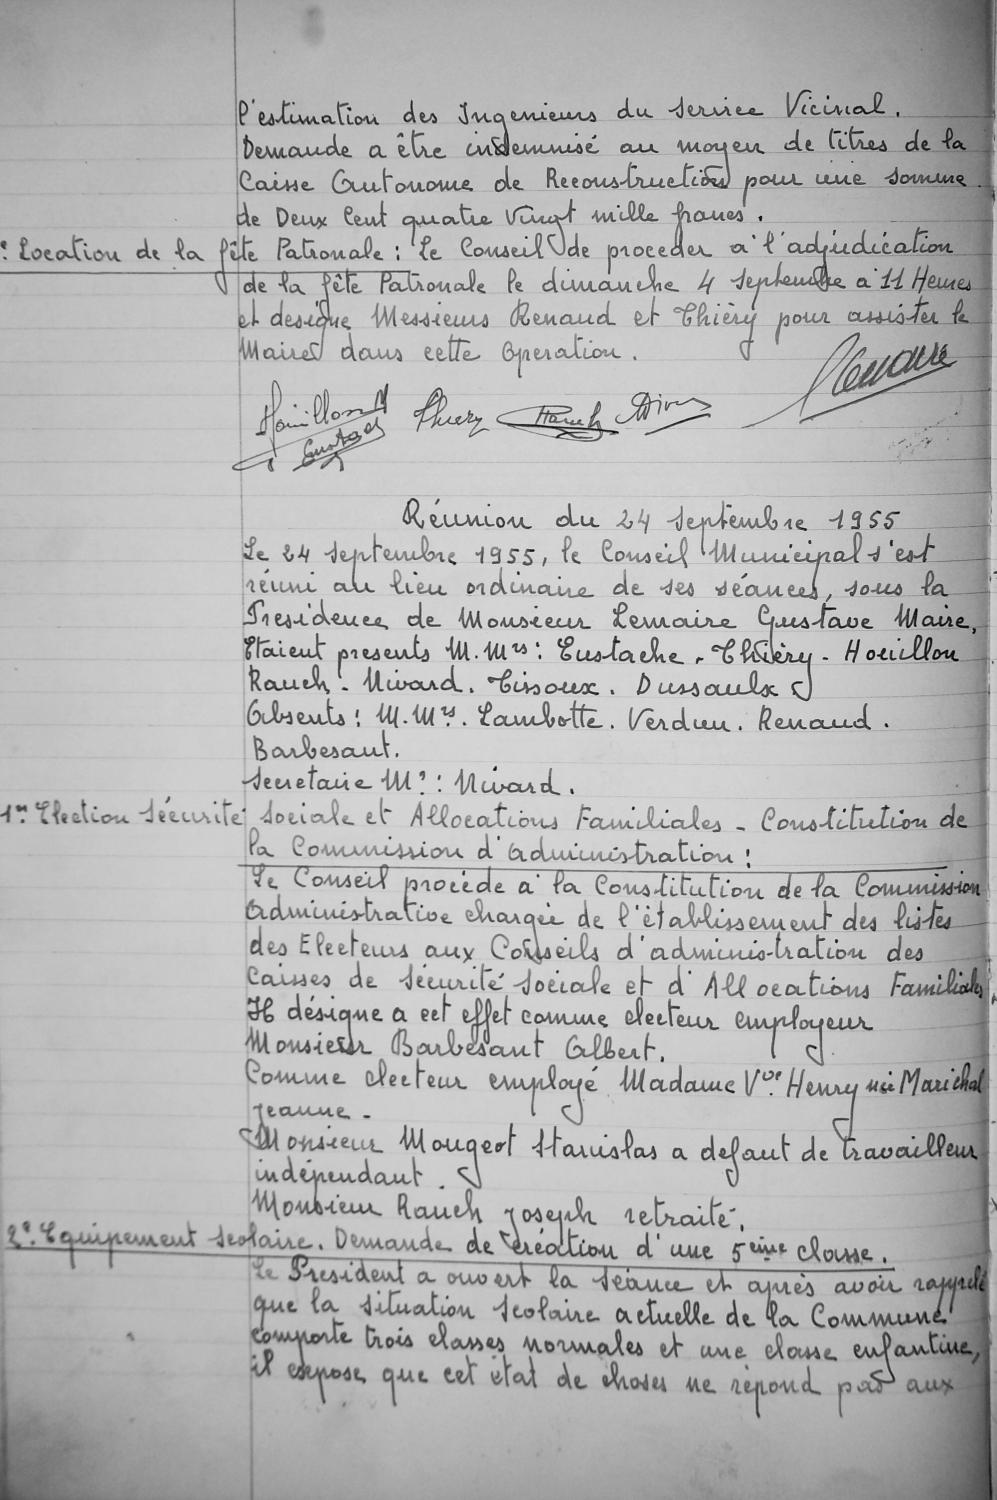 l'estimation des Ingenieurs du Service Vicinal.
Demande a être indemnisé au moyen de titres de la
Caisse Autonome de Reconstruction pour une somme
de Deux Cent quatre Vingt mille francs.
Location de la fête Patronale : Le Conseil de proceder a l'adjudication
de la fête Patronale le dimanche 4 Septembre a 11 Heures
et designe Messieurs Renaud et Thiéry pour assister le
Maire dans cette Operation.
Houillon Thiery Rauch
Eustache
Réunion du 24 Septembre 1955
Le 24 Septembre 1955, le Conseil Municipal s'est
réuni au lieu ordinaire de ses séances, sous la
Presidence de Monsieur Lemaire Gustave Maire,
Etaient presents M.Mrs : Eustache - Thiéry - Houillon
Rauch - Nivard. Tissoux. Dussaulx
Absents : M.Mrs. Lambotte. Verdun. Renaud.
Barbesant.
Secretaire Mr : Nivard.
1er. Election Sécurité Sociale et Allocations Familiales - Constitution de
la Commission d'administration :
Le Conseil procède a la Constitution de la Commission
Administrative chargée de l'établissement des listes
des Electeurs aux Conseils d'administration des
Caisses de Sécurité Sociale et d'Allocations Familiales
Il désigne a cet effet comme electeur employeur
Monsieur Barbesant Albert.
Comme electeur employé Madame Vve Henry née Marichal
Jeanne -
Monsieur Mougeot Stanislas a defaut de travailleur
indépendant.
Monsieur Rauch Joseph retraité.
2e. Equipement Scolaire. Demande de création d'une 5eme classe.
Le President a ouvert la Séance et après avoir rappelé
que la situation Scolaire actuelle de la Commune
comporte trois classes normales et une classe enfantine,
il expose que cet état de choses ne répond pas aux